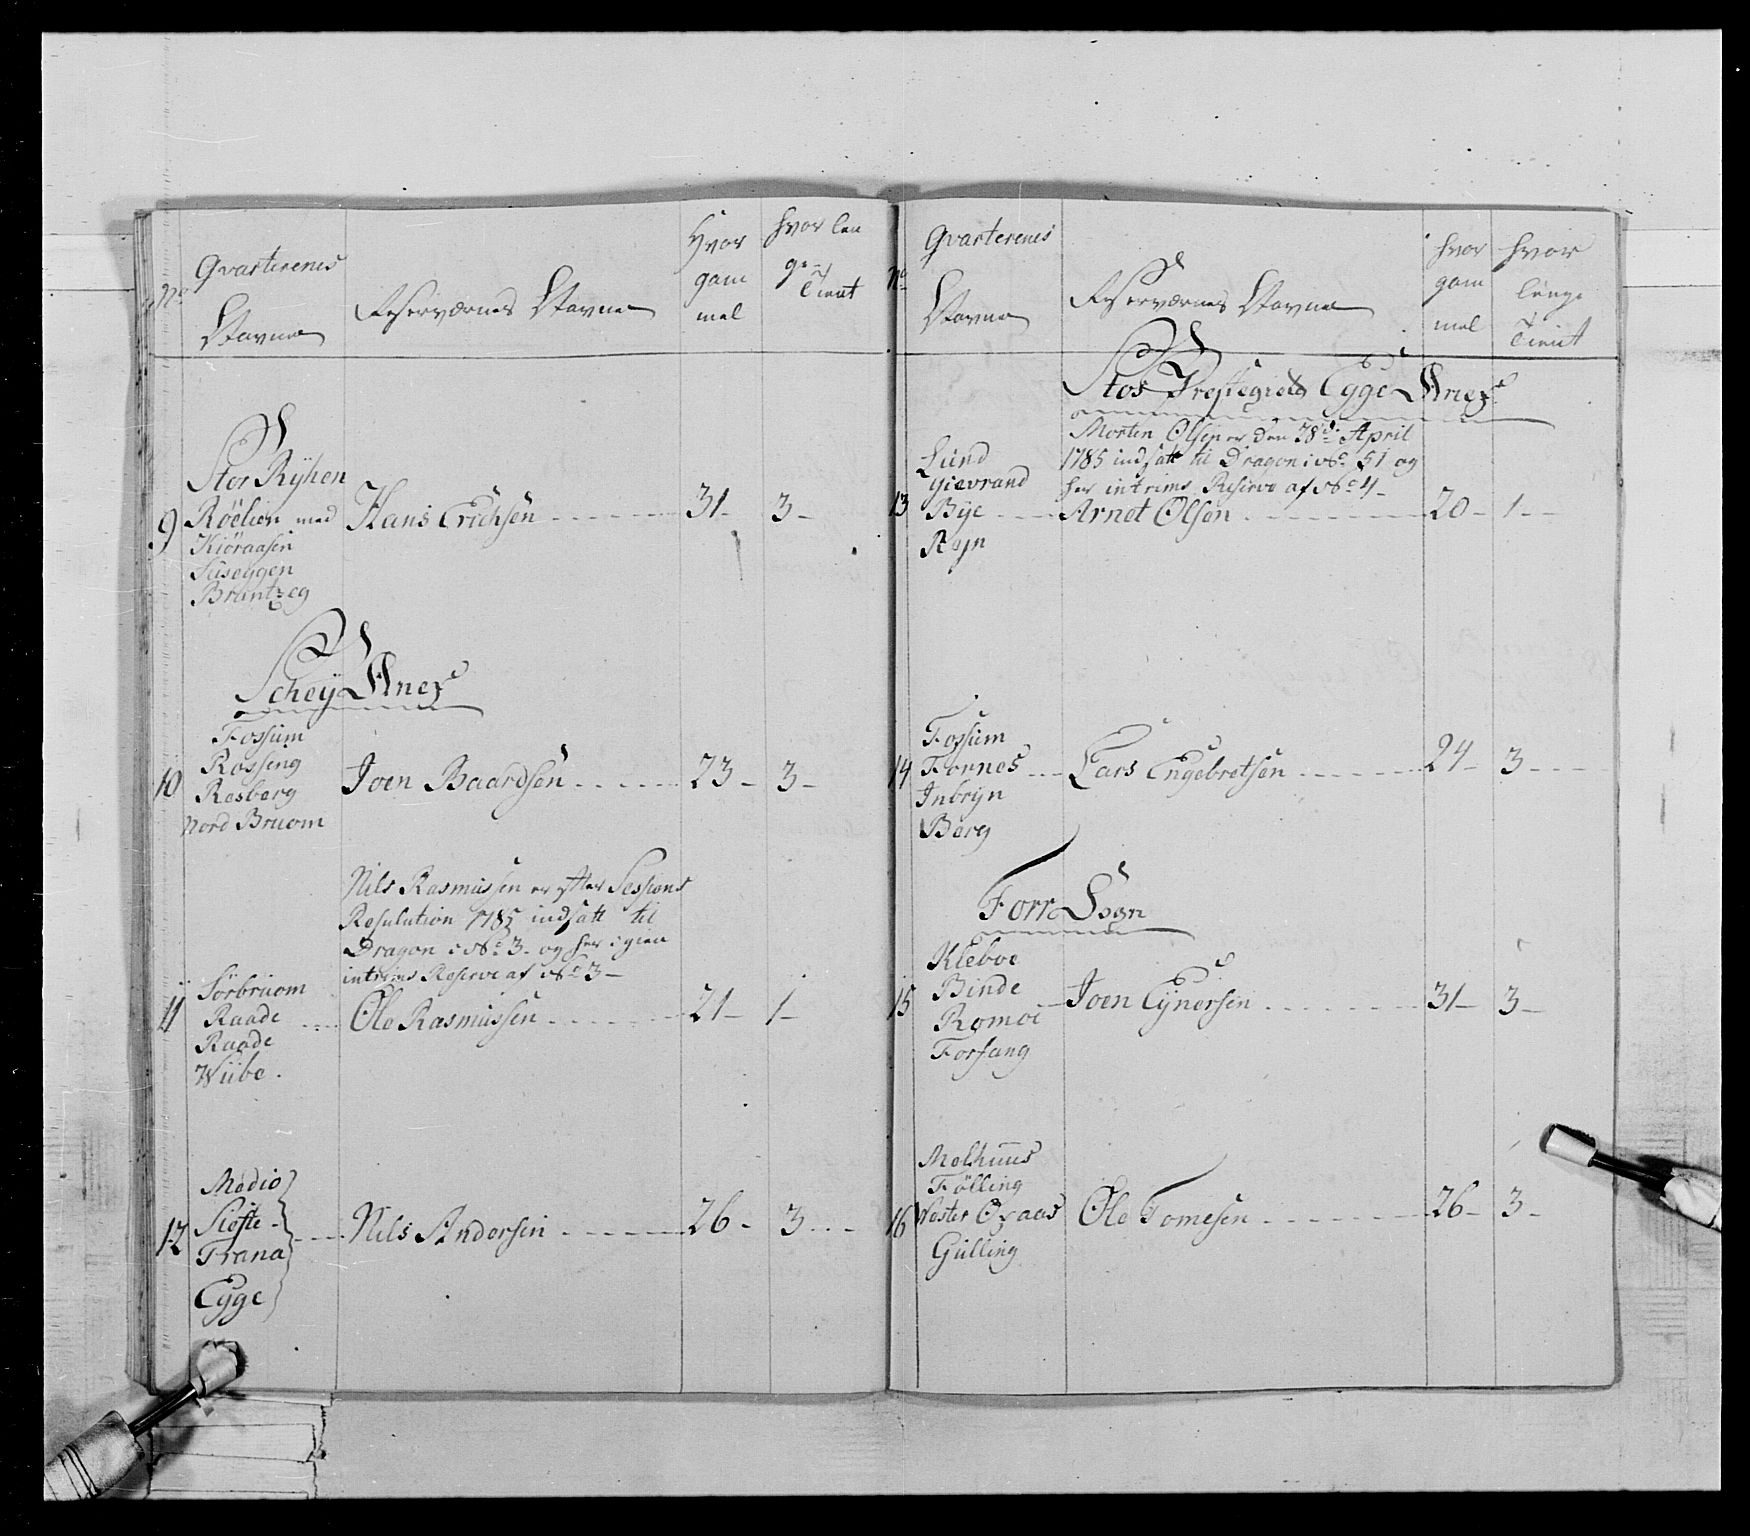 No
Qvarterenes
Navne
Reserværnes Navne
Hvor
gam
mel
hvor len
ge
Tient
Stor Ryhen
Röelien med
9
Kiöraasen
Suseggen
Brantzeg
Hans Erichsen
31
3
Schey Anex
Fossum
Rossing
10
Resberg
Nord Bruom
Joen Baardsen
23
3
Nils Rasmussen er efter Sessions
Resulution 1785 indsatt til
Dragon i No 3 og her igien
intrims Reserve af No 3
Sörbruom
11
Raade
Raade
Wiibe.
Ole Rasmussen
21
1
Medio
Slofte
12
Trana
Egge
Nils Andersen
26
3
No
Qvarterenes
Navne
Reserværnes Navne
hvor
gam
mel
hvor
lenge
Tient
Stos Prestegield Egge Anex
Morten Olsen er den 38d April
1785 indsatt til Dragon i No 51 og
her intrims Reserve af No 4
Lund
Gievrand
13
Bye
Ryn
Arnet Olsen
20
1
Fossum
14
Fornes
Inbryn
Berg
Lars Engebretsen
24
3
Forr Sogn
Kleboe
Binde
15
Romoe
Forfang
Joen Eynersen
31
3
Melhuus
Fölling
16
Vester Oxaas
Gulling
Ole Tomesen
26
3